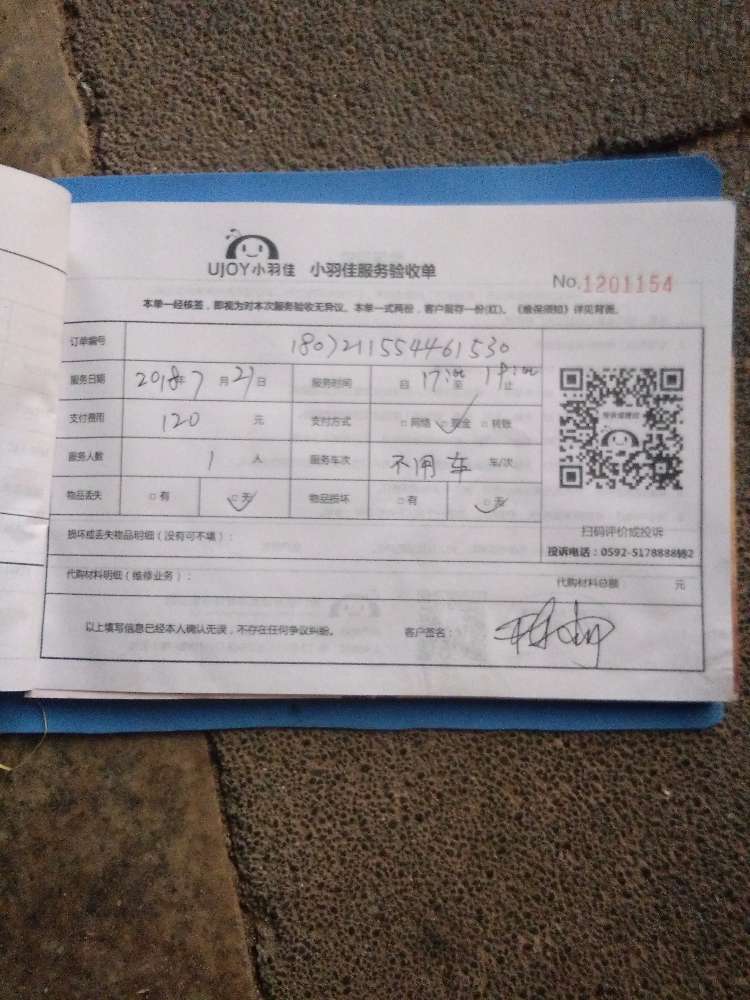 UJOY小羽佳 小羽佳服务验收单
No.1201154
本单一经核签，即视为对本次服务验收无异议。本单一式两份，客户留存一份(红)。《维保须知》详见背面。
订单编号 1807211554461530
服务日期 2018年7月21日 服务时间 自17:00至19:00止
支付费用 120 元 支付方式 □网络 □现金 □转账
服务人数 1 人 服务车次 不用车 车/次
物品丢失 □有 □无 物品损坏 □有 □无
扫码评价或投诉
损坏或丢失物品明细（没有可不填）：
投诉电话：0592-5178888转2
代购材料明细（维修业务）： 代购材料总额 元
以上填写信息已经本人确认无误，不存在任何争议纠纷。 客户签名：